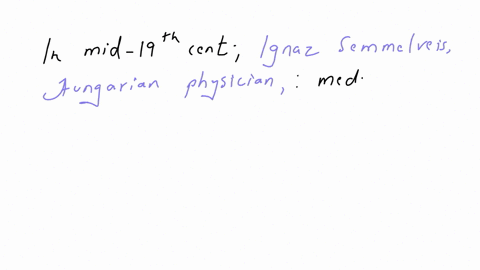 In mid-19th cent; Ignaz Semmelveis,
Hungarian physician, : med.